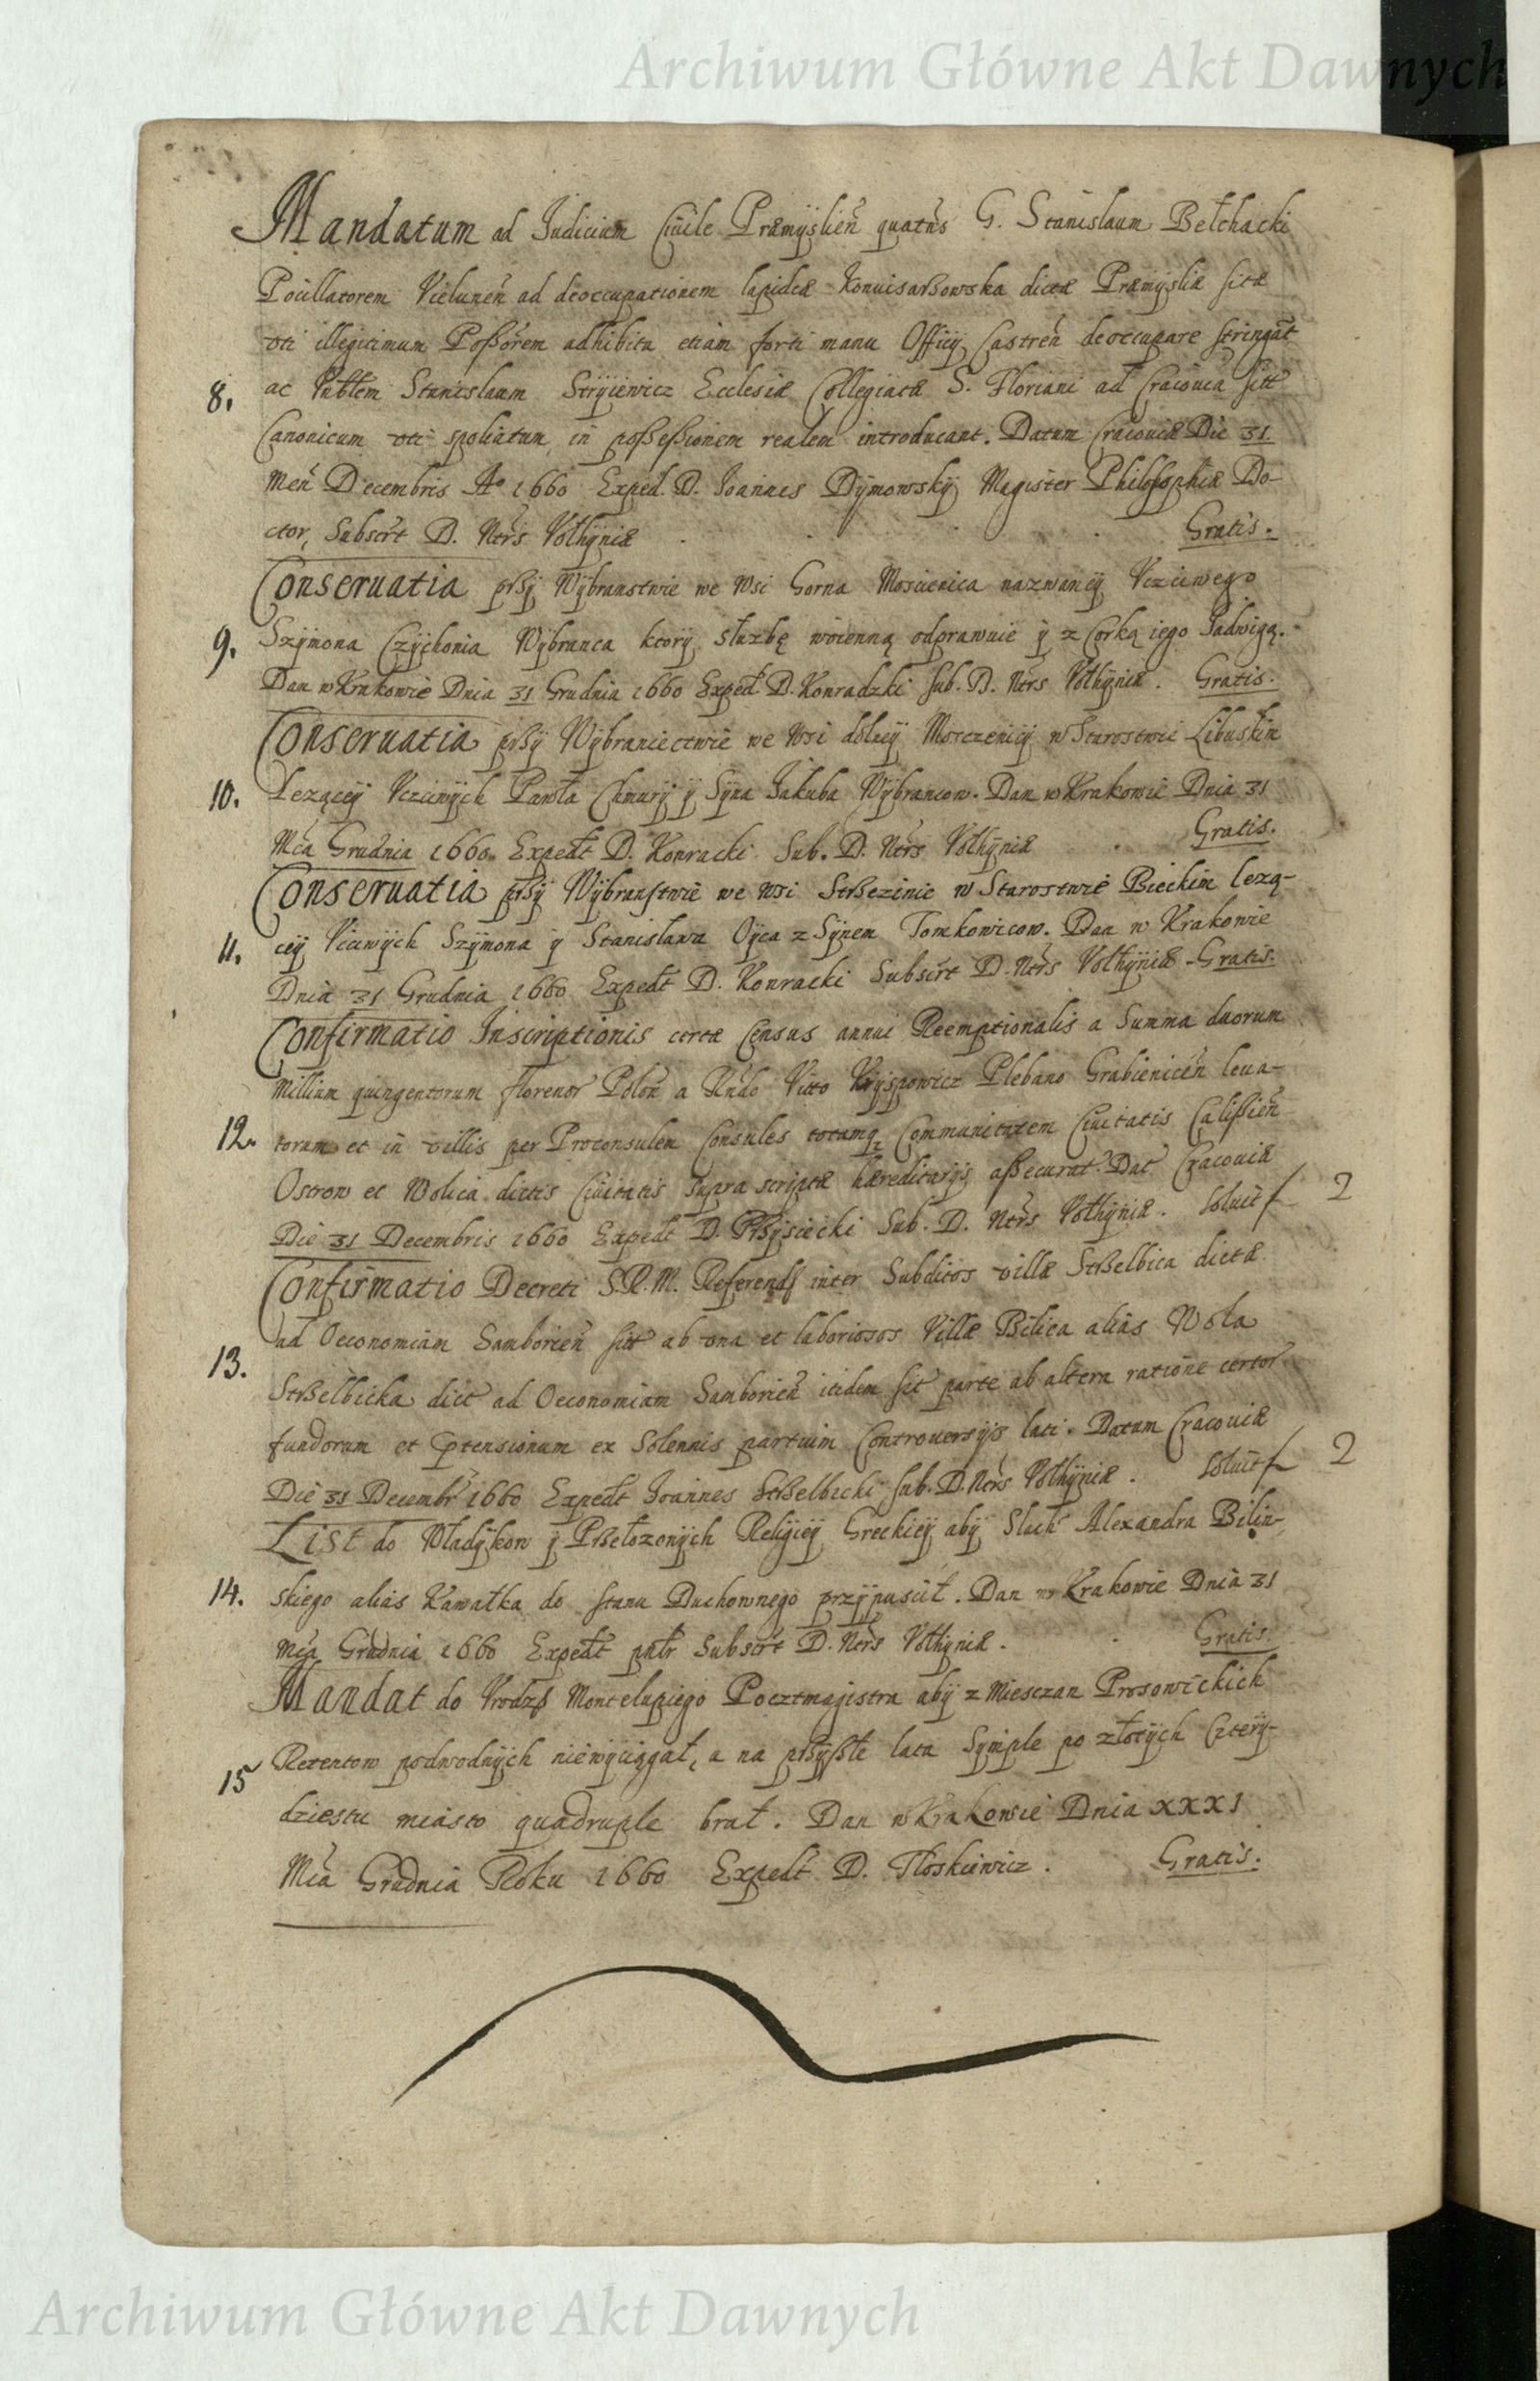 Archiwum Główne Akt Dawnych
Mandatum ad Judicium Ciuile Præmÿslien̄ quaten̄s G. Stanislaum Bełchacki
Pocillatorem Vielunen̄ ad deoccupationem lapideæ Konuisarßowska dictæ Præmÿsliæ sitæ
vti illegitimum Poßōrem adhibita etiam forti manu Officÿ Castren̄ deoccupare stringāt
8. ac Vnb̄lem Stanislaum Strÿiewicz Ecclesiæ Collegiatæ S. Floriani ad Cracouia sitt̄
Canonicum vti spoliatum in poßeßionem realem introducant. Datum Cracouiæ Die 31
Men̄ Decembris Ao 1660 Exped. D. Joannes Dÿmowskÿ Magister Philosophiæ Do-
ctor, Subscr̄t D. Ntr̄s Vołhÿniæ . . . Gratis.
Conseruatia prßÿ Wÿbranstwie we Wsi Gorna Moscienica nazwaneÿ Vcziwego
9. Szÿmona Czÿchonia Wÿbranca ktorÿ służbę woienną odprawuie ÿ z Corką iego Jadwigą.
Dan w Krakowie Dnia 31 Grudnia 1660 Exped̄t D. Konradzki sub. D. Ntr̄s Vołhÿniæ. Gratis.
Conseruatia prßÿ Wÿbraniectwie we Wsi dolneÿ Mosczenicÿ w Starostwie Libuskim
10. Lezącey Vcziwÿch Pawła Chmurÿ ÿ Sÿna Jakuba Wÿbrancow. Dan w Krakowie Dnia 31
Mc̄a Grudnia 1660. Exped̄t D. Konracki Sub. D. Ntr̄s Vołhÿniæ . Gratis.
Conseruatia prßÿ Wÿbranstwie we Wsi Strßezinie w Starostwie Bieckim lezą-
11. ceÿ Vcciwÿch Szÿmona ÿ Stanisława Oÿca z Sÿnem Tomkowicow. Dan w Krakowie
Dnia 31 Grudnia 1660 Exped̄t D. Konracki Subscr̄t D. Ntr̄s Vołhÿniæ - Gratis.
Confirmatio Inscriptionis certæ Census annui Reemptionalis a Summa duorum
millium quingentorum floreno℞ Polon̄ a Rn̄do Vitto Krÿspowicz Plebano Grabienicen̄ leua-
12. torum et in villis per Proconsulem Consules totamq₃ Communitatem Ciuitatis Calißien̄
Ostrow et Wolica dictis Ciuitatis supra scriptæ hæreditarÿs aßecurat. Dat̄ Cracouiæ
Die 31 Decembris 1660 Exped̄t D. Prßÿsiecki Sub. D. Ntr̄s Vołhÿniæ. Soluit f 2
Confirmatio Decreti S.R.M. Referend inter Subditos villæ Strßelbica dictæ
ad Oeconomiam Samborien̄ sitt̄ ab vna et laboriosos Villæ Bilica aliàs Wola
13. Strßelbicka dict̄ ad Oeconomiam Samborien̄ itidem sit̄ parte ab altera ratione certo℞
fundorum et p̄tensionum ex Solennis partium Controuersÿs lati. Datum Cracouiæ
Die 31 Decemb℞ 1660 Exped̄t Joannes Strßelbicki sub. D. Ntr̄s Vołhÿniæ . Soluit f 2
List do Władÿkow ÿ Prßełozonÿch Religieÿ Greckieÿ abÿ Slach̄ Alexandra Bilin-
14. skiego aliàs Kawałka do stanu Duchownego przÿpuscił. Dan w Krakowie Dnia 31
Mc̄a Grudnia 1660 Exped̄t pnt̄r Subscr̄t D. Ntr̄s Vołhÿniæ . . Gratis
Mandat do Vrodz Montelupiego Pocztmagistra abÿ z Miesczan Prosowickich
15 Retentow podwodnÿch niewÿciągał, a na prßÿßłe lata Sÿmple po złotÿch Czterÿ-
dziestu miasto quadruple brał. Dan w Krakowie Dnia XXXI
Mc̄a Grudnia Roku 1660 Exped̄t D. Floskiewicz . Gratis.
Archiwum Główne Akt Dawnych